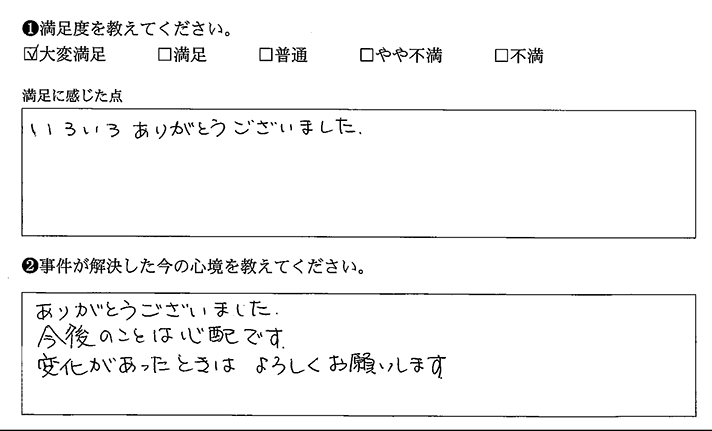 ❶満足度を教えてください。
☑大変満足 □満足 □普通 □やや不満 □不満
満足に感じた点
いろいろありがとうございました.
❷事件が解決した今の心境を教えてください。
ありがとうございました.
今後のことは心配です.
変化があったときは よろしくお願いします